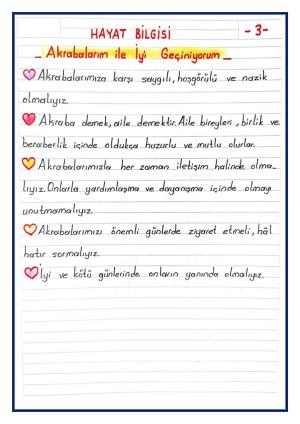 HAYAT BİLGİSİ
-3-
_ Akrabalarım ile İyi Geçiniyorum _
Akrabalarımıza karşı saygılı, hoşgörülü ve nazik
olmalıyız.
Akraba demek, aile demektir. Aile bireyleri, birlik ve
beraberlik içinde oldukça huzurlu ve mutlu olurlar.
Akrabalarımızla her zaman iletişim halinde olma_
lıyız. Onlarla yardımlaşma ve dayanışma içinde olmayı
unutmamalıyız.
Akrabalarımızı önemli günlerde ziyaret etmeli, hâl
hatır sormalıyız.
İyi ve kötü günlerinde onların yanında olmalıyız.